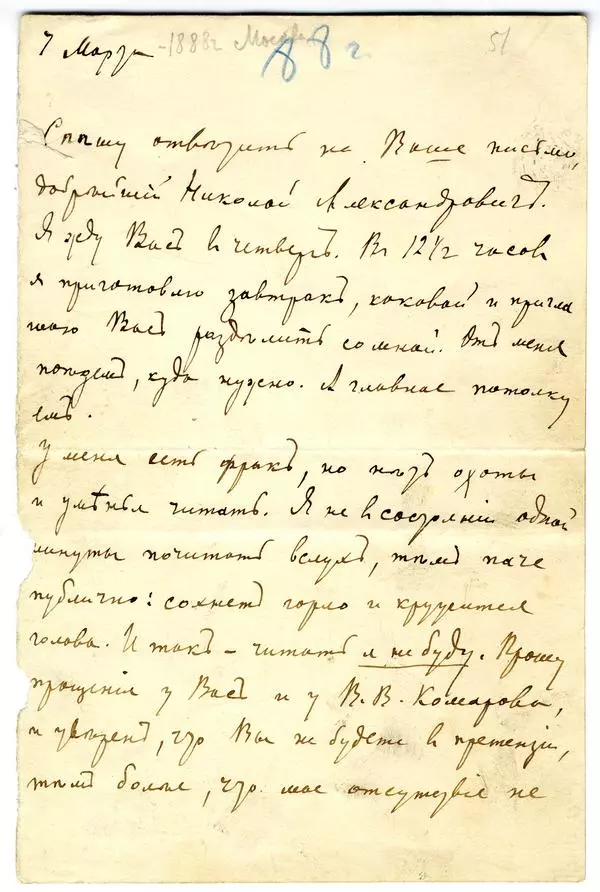 7 Марта - 1888 г Москва 88 г. 51
Спѣшу отвѣтить на Ваше письмо,
добрѣйшій Николай Александровичъ.
Я жду Васъ в четвергъ. Въ 12½ часов
я приготовлю завтракъ, каковой и пригла
шаю Васъ раздѣлить со мной. Отъ меня
поѣдемъ, куда нужно. А главное потолку
емъ.
У меня есть фракъ, но нѣтъ охоты
и умѣнья читать. Я не в состояніи одной
минуты почитать вслухъ, тѣмъ паче
публично: сохнетъ горло и кружится
голова. Итакъ – читать я не буду. Прошу
прощенія у Васъ и у В. В. Комарова,
и увѣренъ, что Вы не будете в претензіи,
тѣмъ болѣе, что мое отсутствіе не